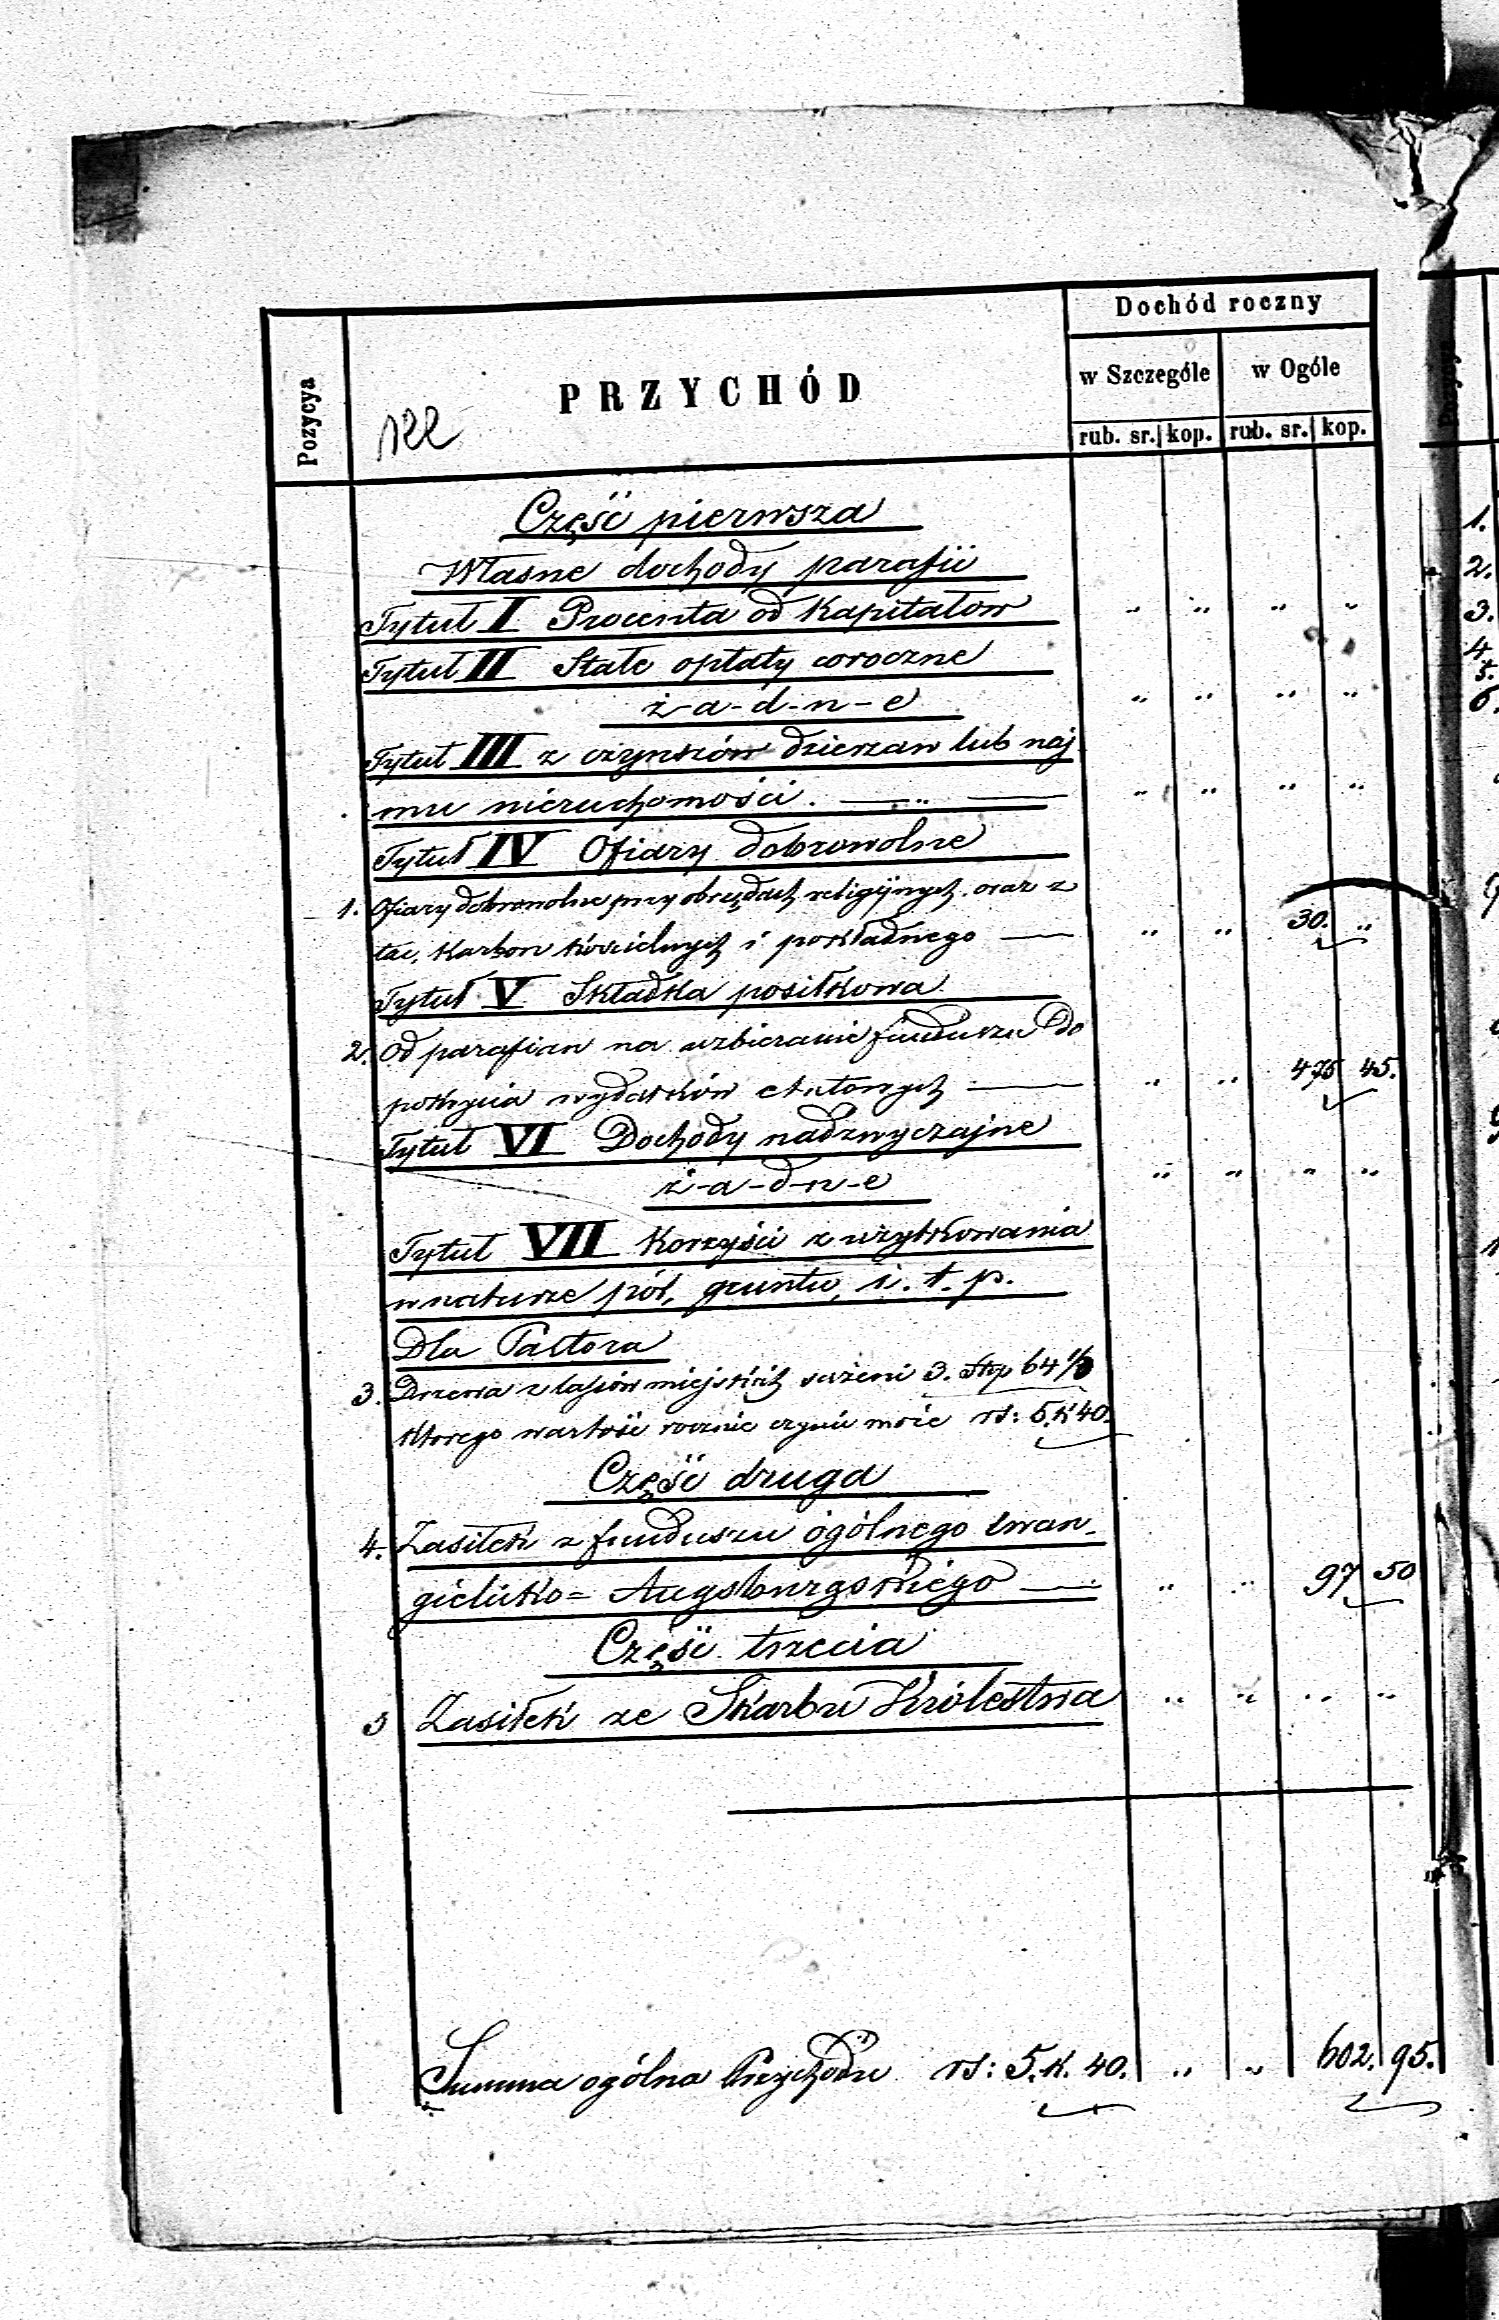 Dochód roczny
Pozycya
PRZYCHÓD
w Szczególe
w Ogóle
rub. sr. kop. rub. sr. kop.
122
Część pierwsza
Własne dochody parafii
Tytuł I Procenta od Kapitałów „ „ „ „
Tytuł II Stałe opłaty coroczne
ż-a-d-n-e „ „ „ „
Tytuł III z czynszów dzierżaw lub naj
mu nieruchomości. — „ — „ „ „ „
Tytuł IV Ofiary dobrowolne
1. Ofiary dobrowolne przy obrzędach religijnych oraz z
tac, karbon kościelnych i pokładnego — „ „ 30. „
Tytuł V Składka posiłkowa
2. Od parafian na uzbieranie funduszu do
pokrycia wydatków etatowych — „ „ 475 45.
Tytuł VI Dochody nadzwyczajne
ż-a-d-n-e „ „ „ „
Tytuł VII Korzyści z użytkowania
w naturze pól, gruntu, i. t. p.
Dla Pastora
3. Drzewa z lasów miejskich sążeni 3. Stp 64 1/2
którego wartość rocznie czynić może rs: 5. k 40.
Część druga
4. Zasiłek z funduszu ogólnego Ewan-
gielicko= Augsburgskiego — „ „ 97 50
Część trzecia
5 Zasiłek ze Skarbu Królestwa „ „ „ „
Summa ogólna Przychodu rs: 5. k. 40. „ „ 602. 95.
1.
2.
3.
4.
5.
6.